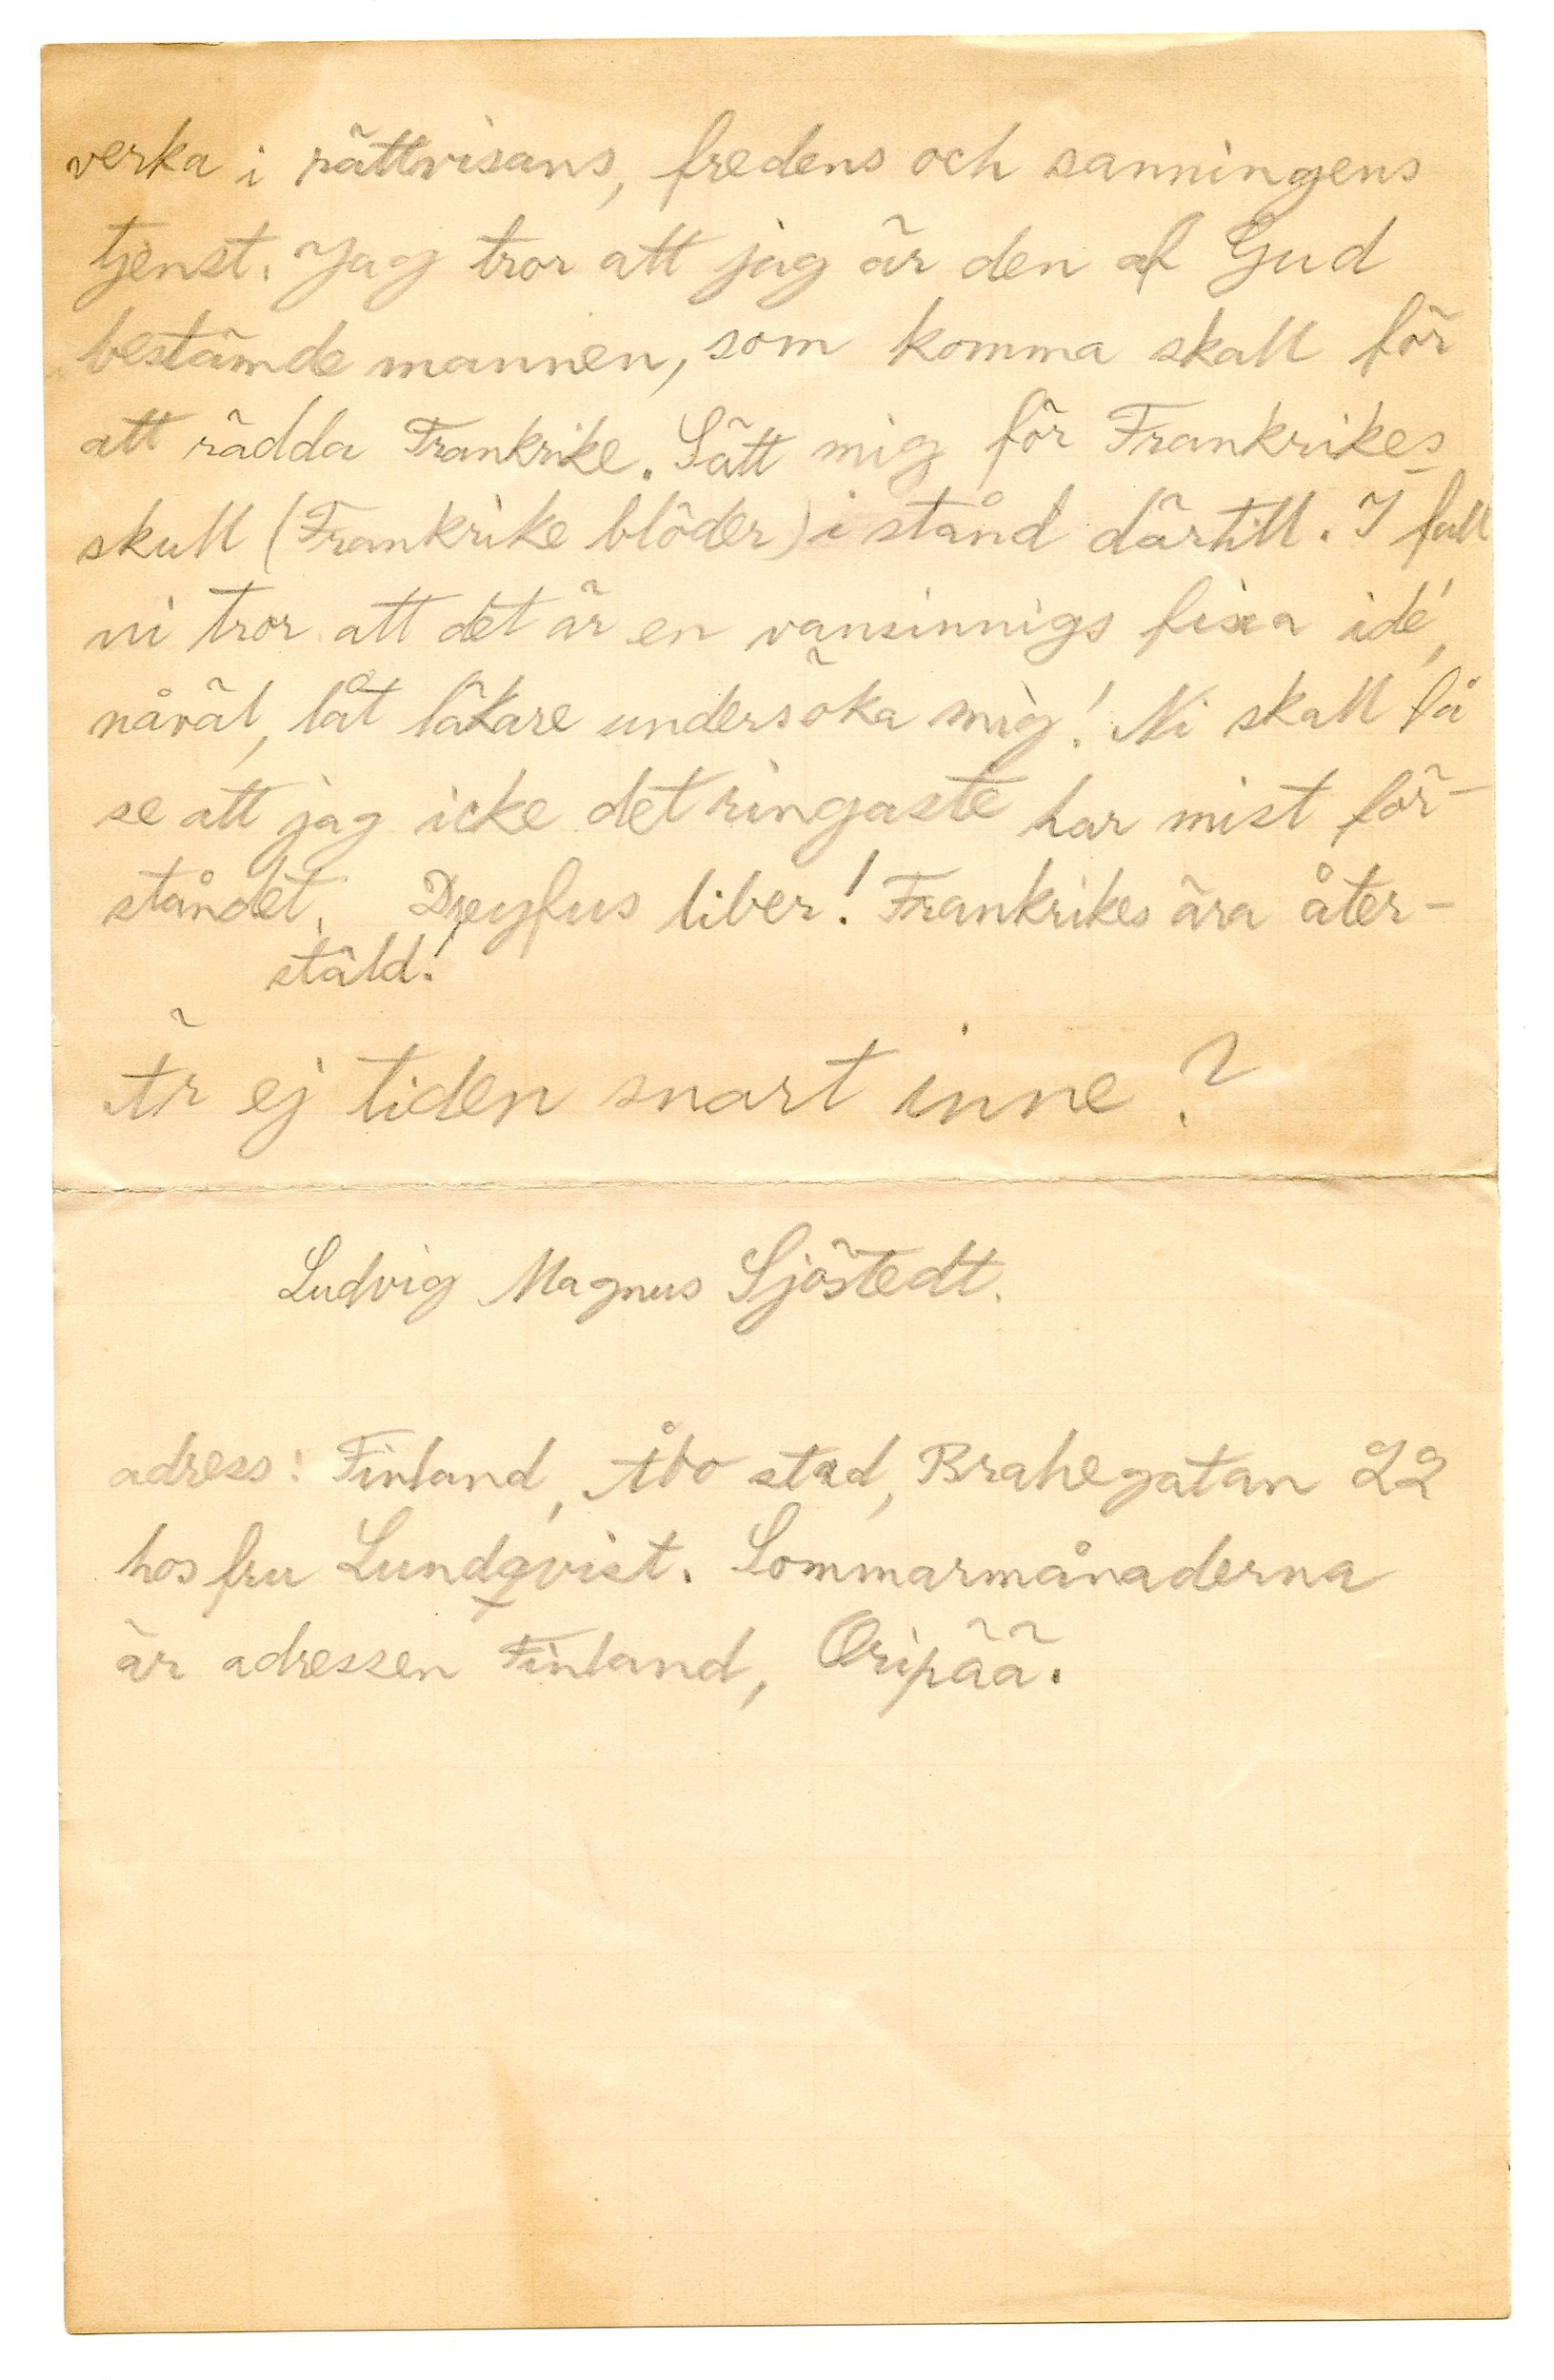 verka i rättvisans, fredens och sanningens
tjenst. Jag tror att jag är den af Gud
bestämde mannen, som komma skall för
att rädda Frankrike. Sätt mig för Frankrikes
skull (Frankrike blöder) i stånd därtill. I fall
ni tror att det är en vansinnigs fixa idé,
nåväl, låt läkare undersöka mig! Ni skall få
se att jag icke det ringaste har mist för-
ståndet. Dreyfus liber! Frankrikes ära åter-
stäld.
Är ej tiden snart inne?
Ludvig Magnus Sjöstedt.
adress: Finland, Åbo stad, Brahegatan 22
hos fru Lundqvist. Sommarmånaderna
är adressen Finland, Oripää.